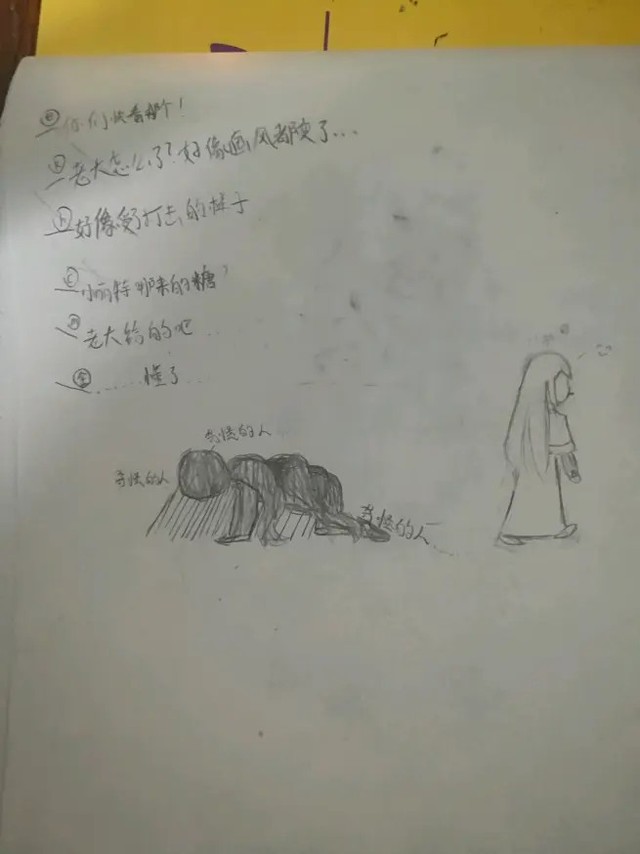 你们快看那个！
老大怎么了？好像画风都突变了...
好像受了打击的样子
小丽特哪来的糖？
老大给的吧...
......懂了...
奇怪的人
奇怪的人
奇怪的人...